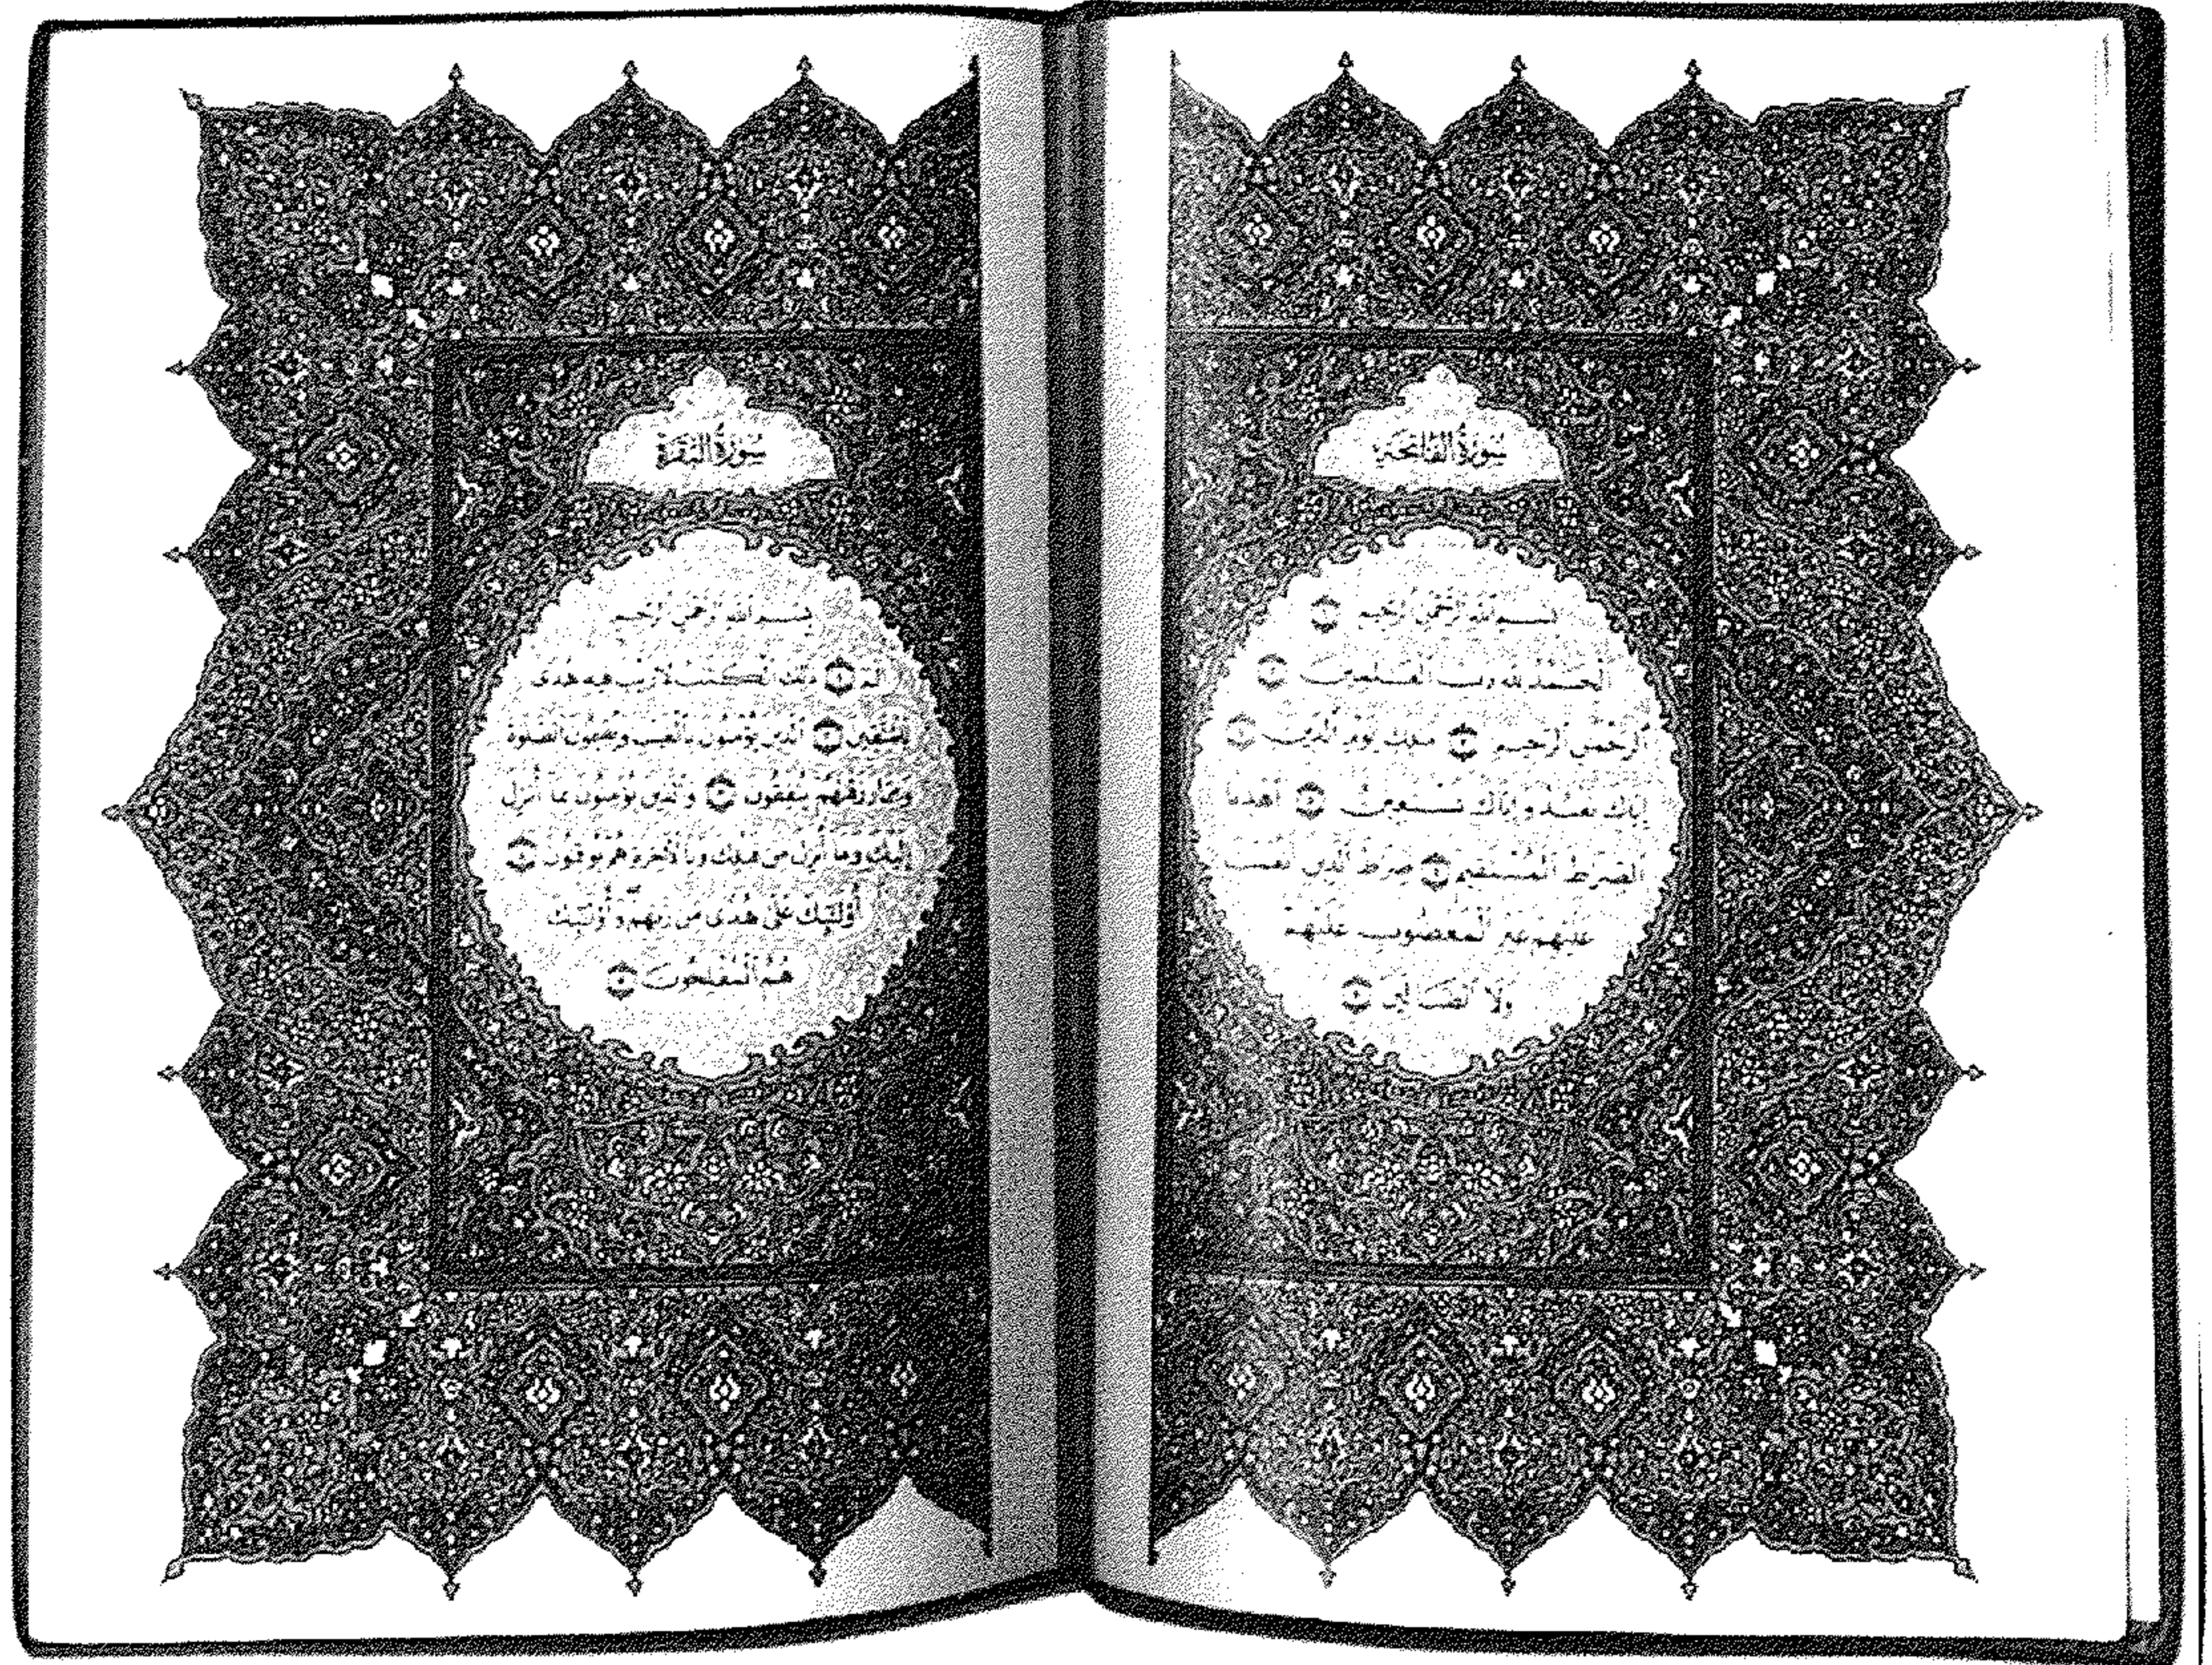 سُورَةُ الفَاتِحَةِ
بِسْمِ ٱللَّهِ ٱلرَّحْمَٰنِ ٱلرَّحِيمِ ١
ٱلْحَمْدُ لِلَّهِ رَبِّ ٱلْعَٰلَمِينَ ٢
ٱلرَّحْمَٰنِ ٱلرَّحِيمِ ٣ مَٰلِكِ يَوْمِ ٱلدِّينِ ٤
إِيَّاكَ نَعْبُدُ وَإِيَّاكَ نَسْتَعِينُ ٥ ٱهْدِنَا
ٱلصِّرَٰطَ ٱلْمُسْتَقِيمَ ٦ صِرَٰطَ ٱلَّذِينَ أَنْعَمْتَ
عَلَيْهِمْ غَيْرِ ٱلْمَغْضُوبِ عَلَيْهِمْ
وَلَا ٱلضَّآلِّينَ ٧
سُورَةُ البَقَرَةِ
بِسْمِ ٱللَّهِ ٱلرَّحْمَٰنِ ٱلرَّحِيمِ
الٓمٓ ١ ذَٰلِكَ ٱلْكِتَٰبُ لَا رَيْبَ فِيهِ هُدًى
لِّلْمُتَّقِينَ ٢ ٱلَّذِينَ يُؤْمِنُونَ بِٱلْغَيْبِ وَيُقِيمُونَ ٱلصَّلَوٰةَ
وَمِمَّا رَزَقْنَٰهُمْ يُنفِقُونَ ٣ وَٱلَّذِينَ يُؤْمِنُونَ بِمَآ أُنزِلَ
إِلَيْكَ وَمَآ أُنزِلَ مِن قَبْلِكَ وَبِٱلْءَاخِرَةِ هُمْ يُوقِنُونَ ٤
أُو۟لَٰٓئِكَ عَلَىٰ هُدًى مِّن رَّبِّهِمْ وَأُو۟لَٰٓئِكَ
هُمُ ٱلْمُفْلِحُونَ ٥